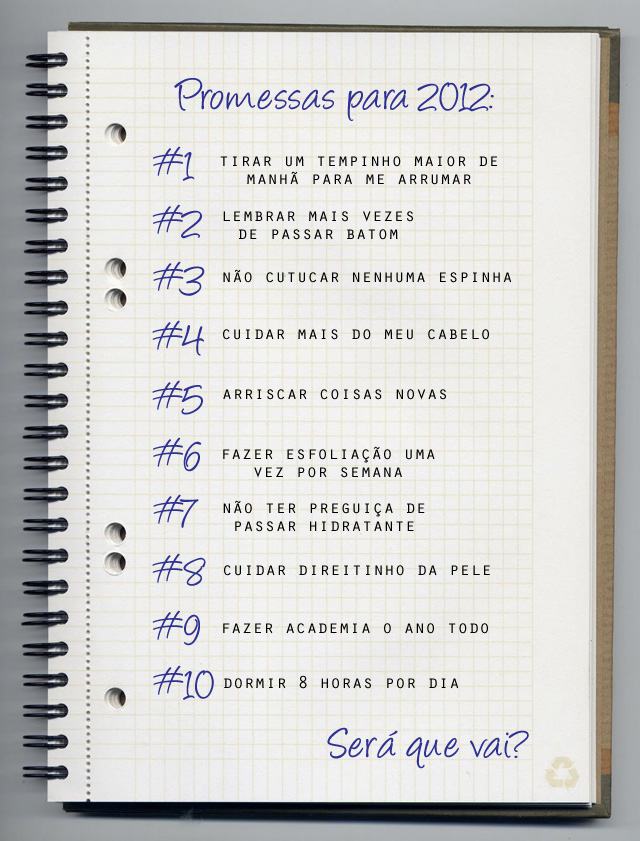 Promessas para 2012:
#1 TIRAR UM TEMPINHO MAIOR DE
MANHÃ PARA ME ARRUMAR
#2 LEMBRAR MAIS VEZES
DE PASSAR BATOM
#3 NÃO CUTUCAR NENHUMA ESPINHA
#4 CUIDAR MAIS DO MEU CABELO
#5 ARRISCAR COISAS NOVAS
#6 FAZER ESFOLIAÇÃO UMA
VEZ POR SEMANA
#7 NÃO TER PREGUIÇA DE
PASSAR HIDRATANTE
#8 CUIDAR DIREITINHO DA PELE
#9 FAZER ACADEMIA O ANO TODO
#10 DORMIR 8 HORAS POR DIA
Será que vai?